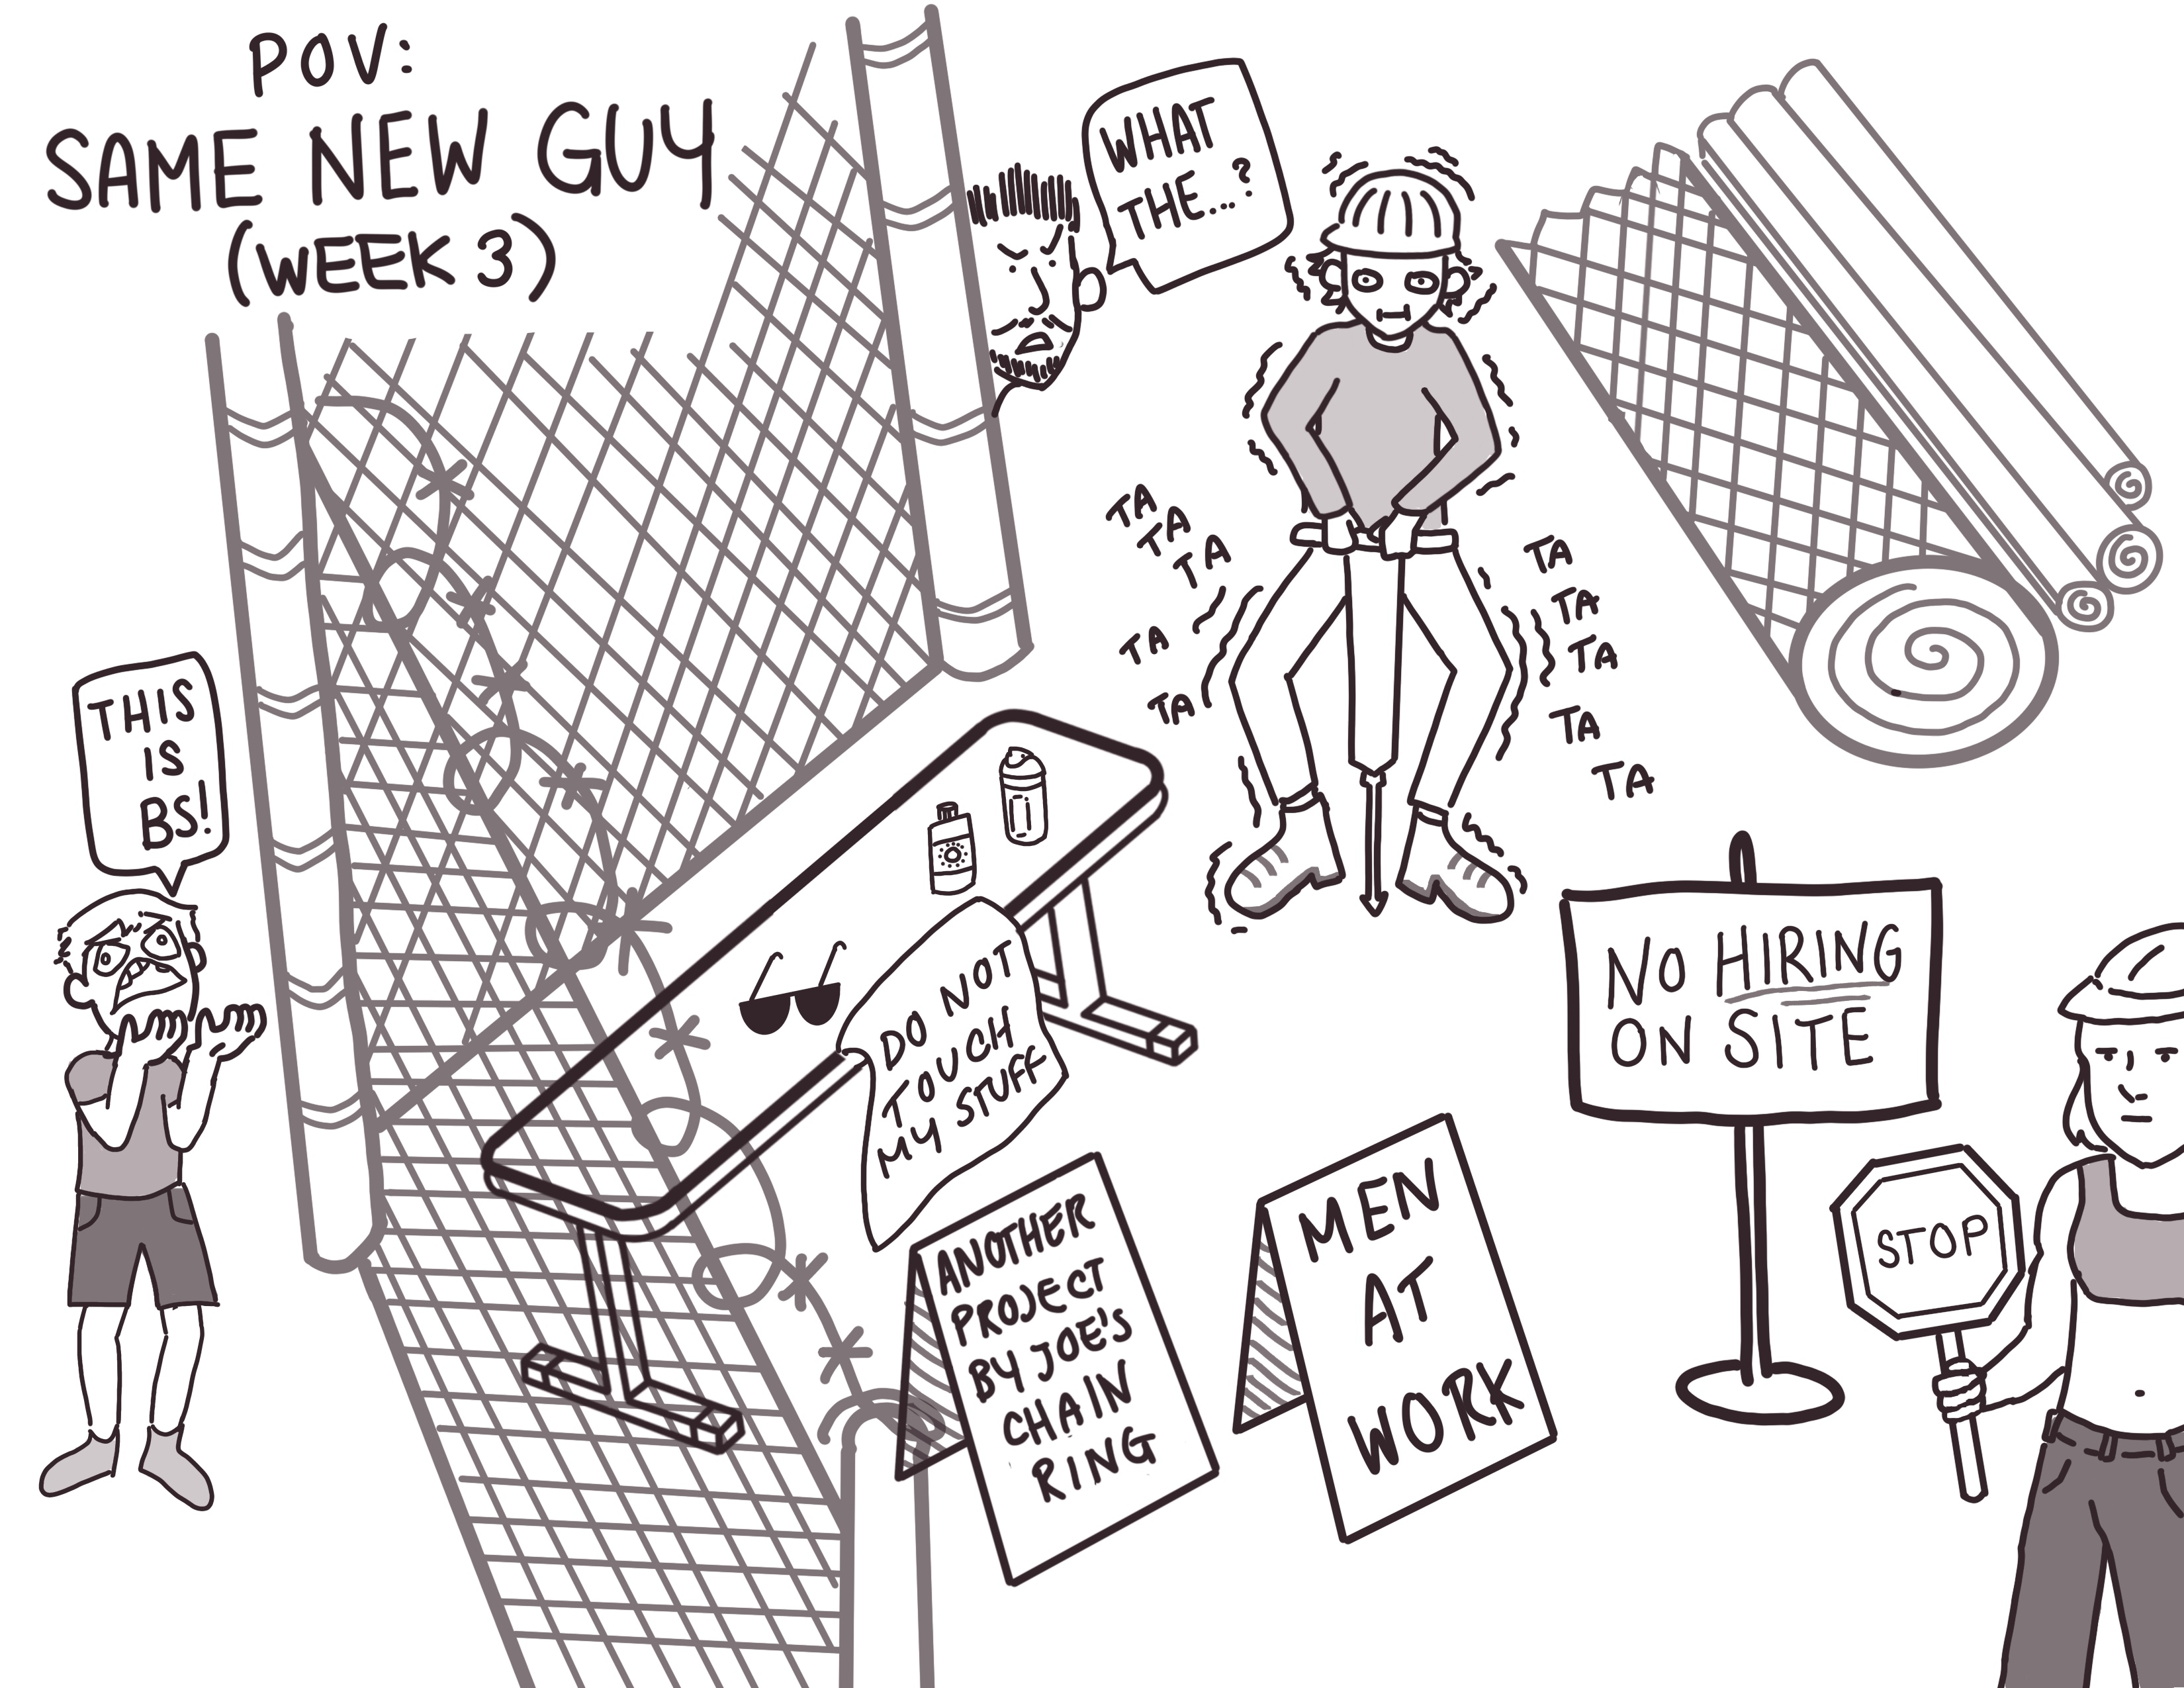 POV:
SAME NEW GUY
(WEEK 3)
WHAT
THE...?
TA
TA
TA
TA
TA
TA
TA
TA
TA
TA
THIS
IS
BS!
DO NOT
TOUCH
MY STUFF
NO HIRING
ON SITE
STOP
ANOTHER
PROJECT
BY JOE'S
CHAIN
RING
MEN
AT
WORK